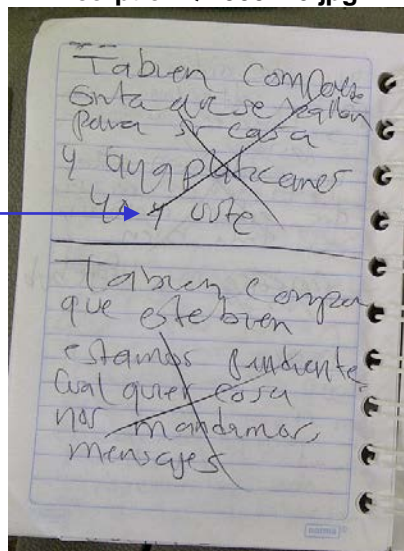 Tabien Compa
Enta que se vallan
para su casa
y aya platicamos
yo y uste
Tabien compa
que este bien
estamos pendiente
Cual quier cosa
nos mandamos
mensajes